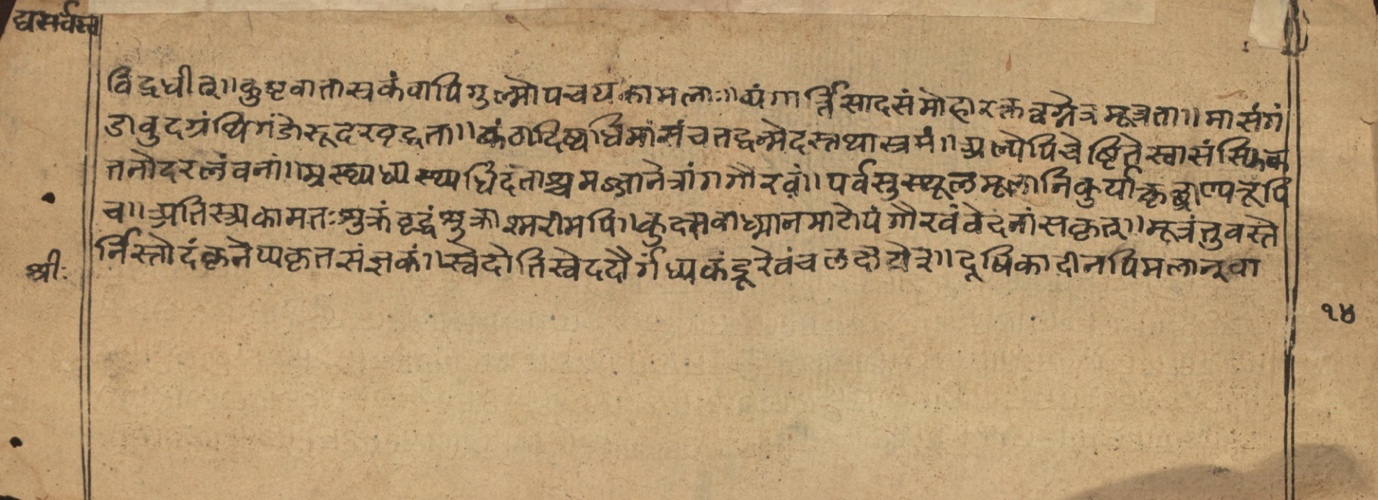 द्यसर्वस्व
विद्रधीन्॥ कुष्टवातास्रकंवापिगुल्मोपचयकामलाः॥ यंगार्निसादसंमोहारक्तत्वग्नेत्रमूत्रता॥ मासंगं
डावुदग्रंथिगंडोरूदरवृद्धता॥ कंठादिष्वधिमांसंचतद्वन्मेदस्तथास्रमं॥ अल्पेपिचेष्टितेस्वासंस्फिक
तनौदरलंवनां॥ अस्थ्यध्यस्थ्यधिदंताश्चमज्जानेत्रांगगौरवं॥ पर्वसुस्थूलमूलानिकुर्यात्कृछ्राण्यरूंषि
च॥ अतिस्त्र्यकामतःशुक्रंवृद्धंशुक्राश्मरीमपि॥ कुक्षावाध्मानमाटोपंगौरवंवेदनांसकृत्॥ मूत्रंतुवस्ते
र्निस्तोदंकृतेप्यकृतसंज्ञकं॥ स्वेदोतिस्वेददौर्गंध्यकंडूरेवंचलक्षयेत्॥ दूषिकादीनपिमलान्वा
श्रीः
१४